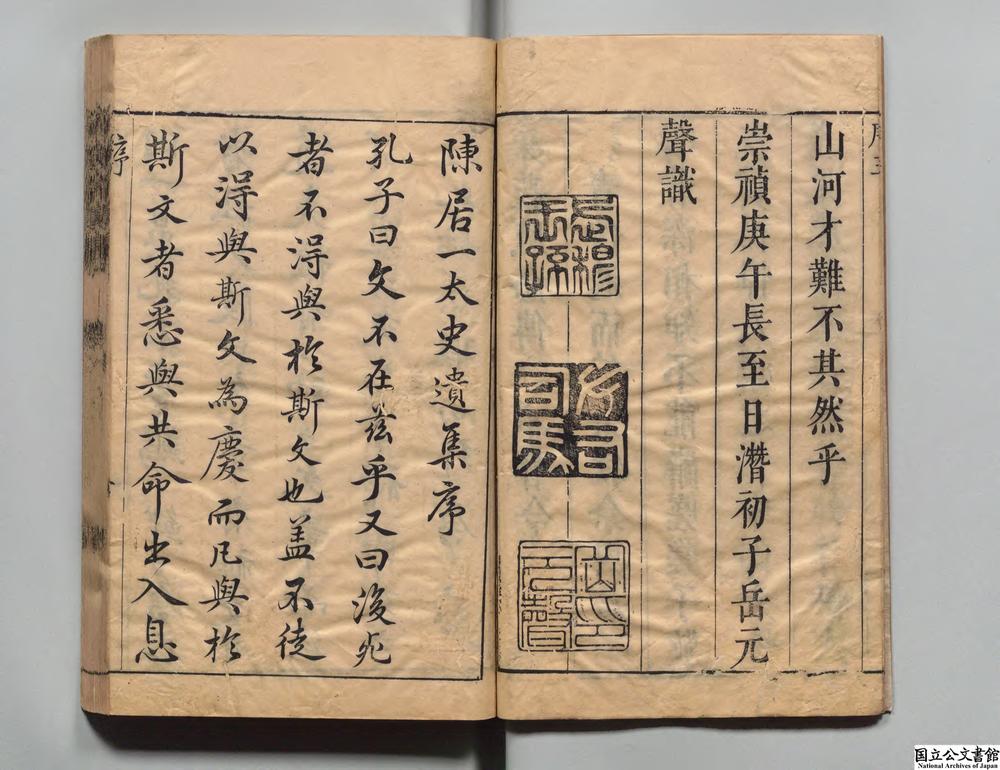 山河才難不其然乎
崇禎庚午長至日濳初子岳元
聲識
岳印
元聲
陳居一太史遺集序
孔子曰文不在茲乎又曰後死
者不得與於斯文也蓋不徒
以得與斯文為慶而凡與於
斯文者悉與共命出入息
序
国立公文書館
National Archives of Japan